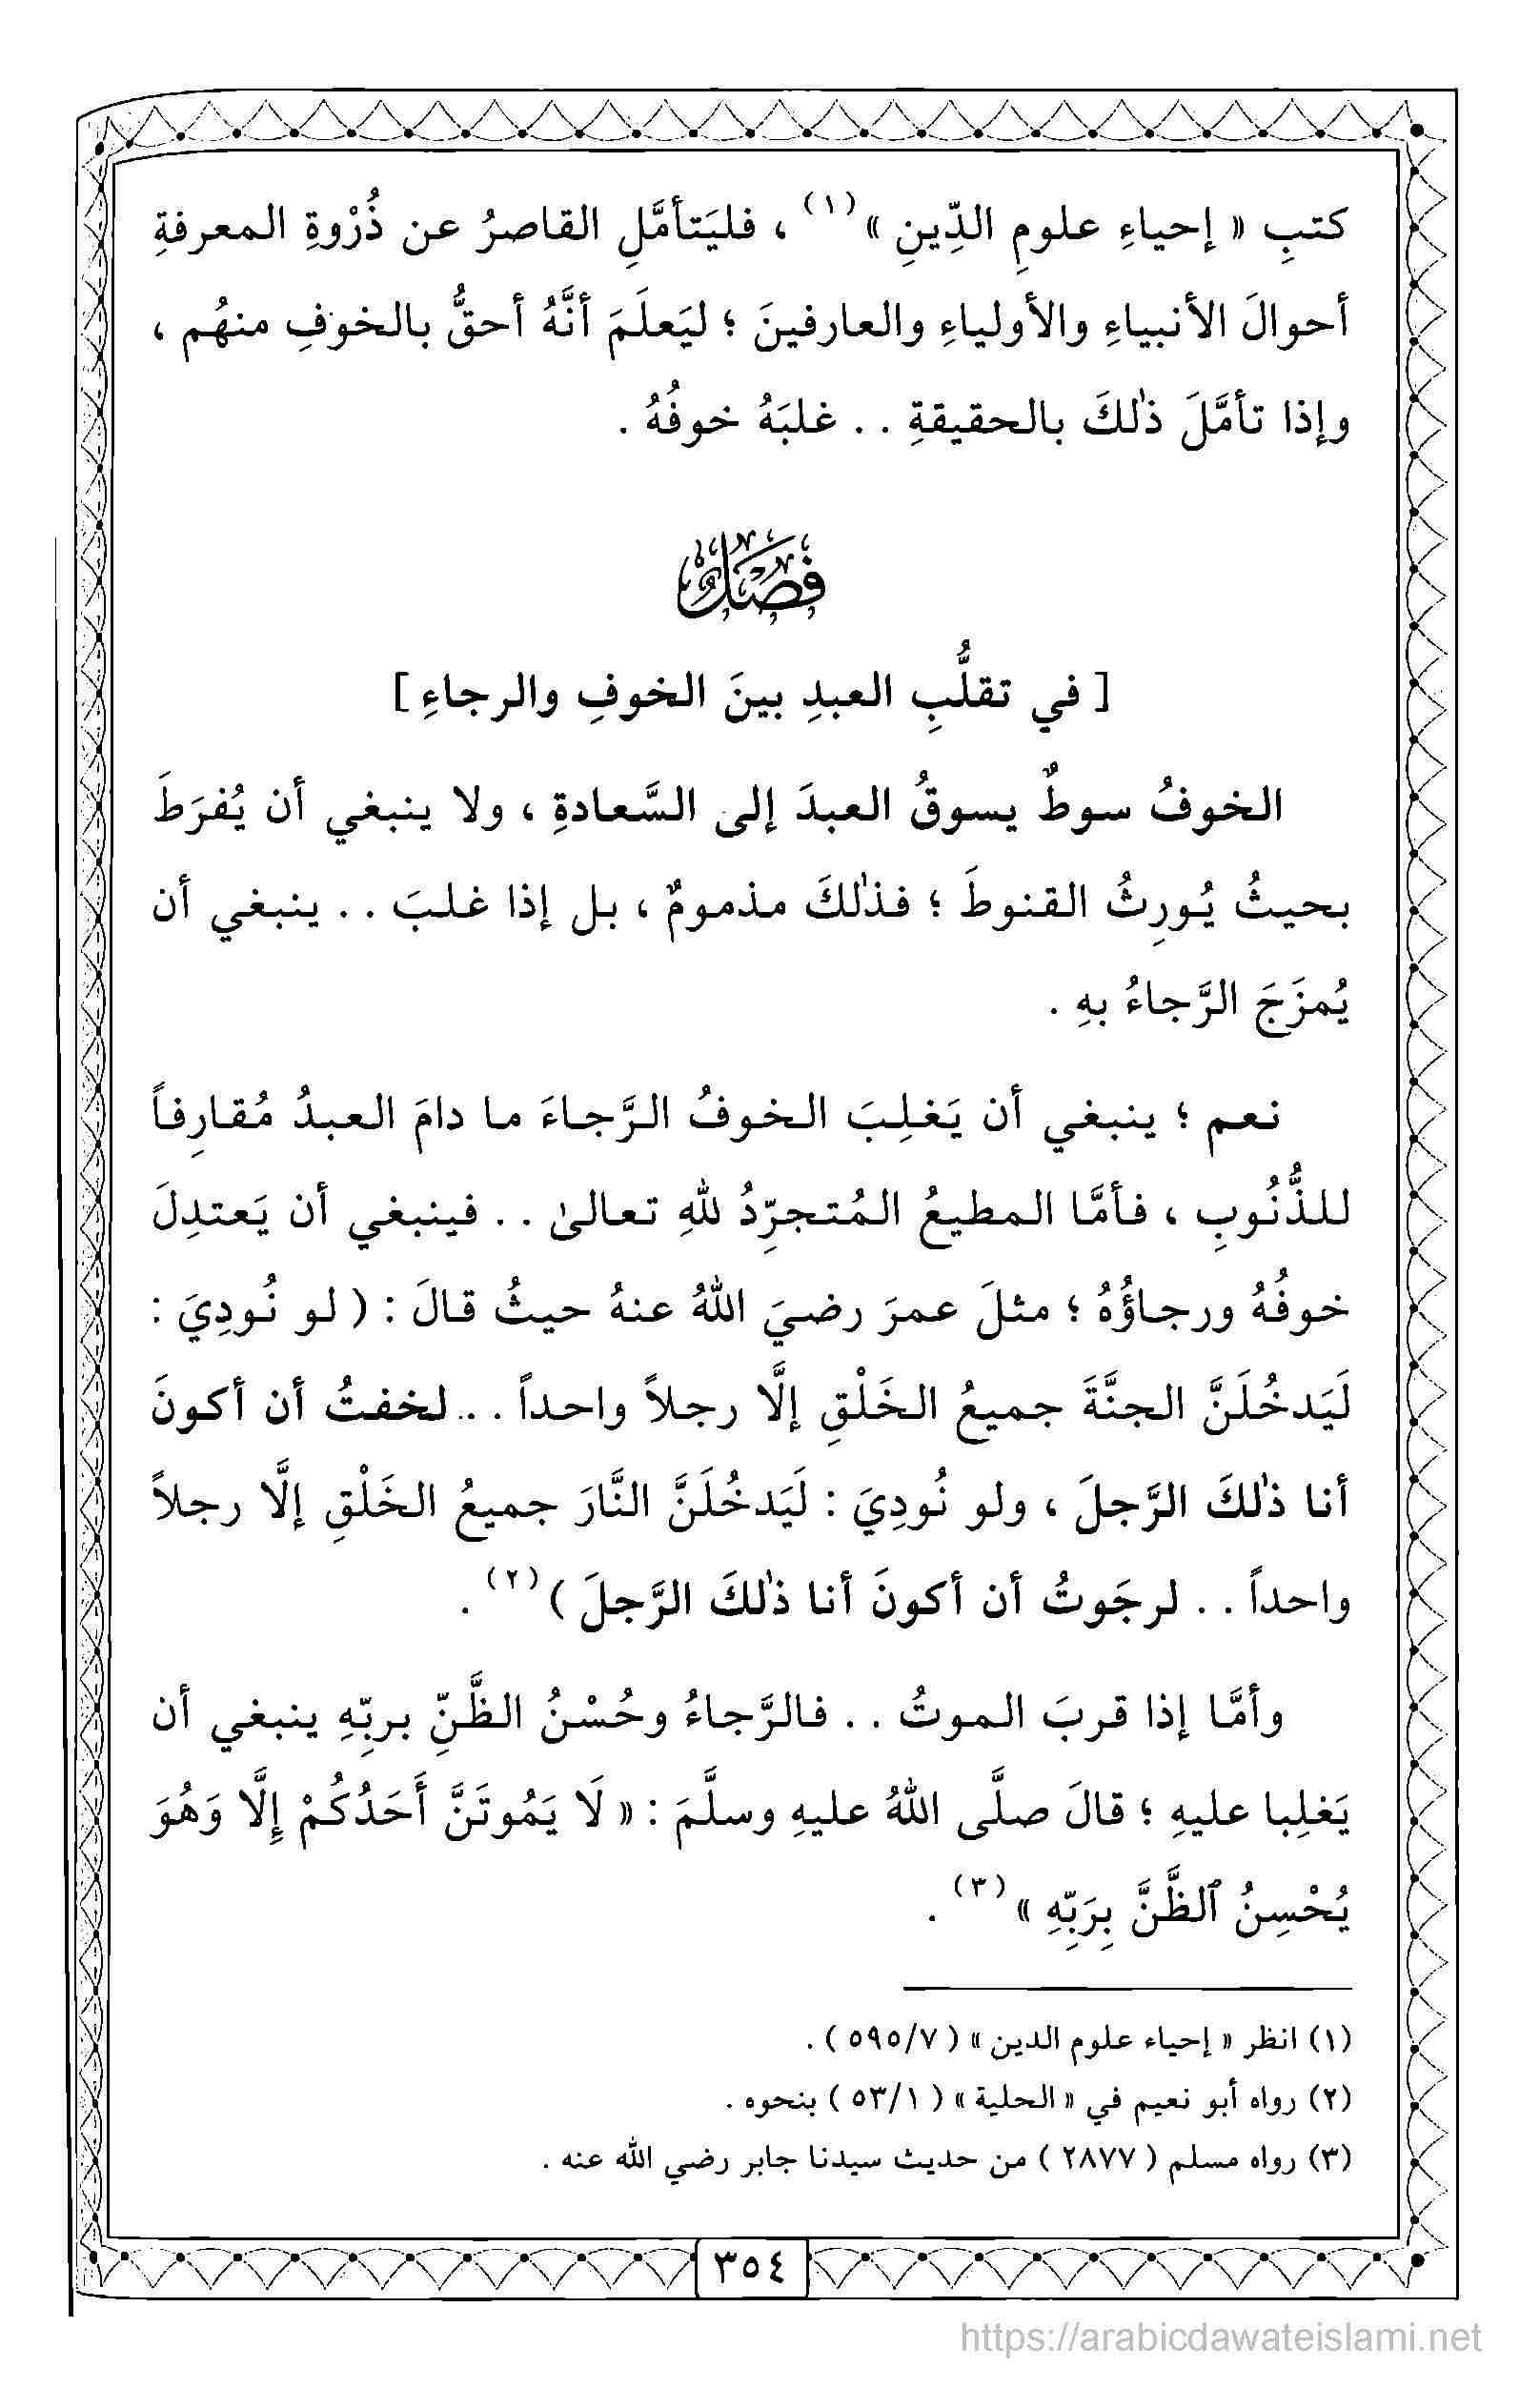 كتبِ « إحياءِ علومِ الدِّينِ »(١) ، فليَتأمَّلِ القاصرُ عن ذُرْوةِ المعرفةِ
أحوالَ الأنبياءِ والأولياءِ والعارفينَ ؛ ليَعلَمَ أنَّهُ أحقُّ بالخوفِ منهُم ،
وإذا تأمَّلَ ذٰلكَ بالحقيقةِ . . غلبَهُ خوفُهُ .
فصل
[ في تقلُّبِ العبدِ بينَ الخوفِ والرجاءِ ]
الخوفُ سوطٌ يسوقُ العبدَ إلى السَّعادةِ ، ولا ينبغي أن يُفرَطَ
بحيثُ يُورِثُ القنوطَ ؛ فذٰلكَ مذمومٌ ، بل إذا غلبَ . . ينبغي أن
يُمزَجَ الرَّجاءُ بهِ .
نعم ؛ ينبغي أن يَغلِبَ الخوفُ الرَّجاءَ ما دامَ العبدُ مُقارِفاً
للذُّنُوبِ ، فأمَّا المطيعُ المُتجرِّدُ للهِ تعالىٰ . . فينبغي أن يَعتدِلَ
خوفُهُ ورجاؤُهُ ؛ مثلَ عمرَ رضيَ اللهُ عنهُ حيثُ قالَ : ( لو نُودِيَ :
لَيَدخُلَنَّ الجنَّةَ جميعُ الخَلْقِ إلَّا رجلاً واحداً . .. لخفتُ أن أكونَ
أنا ذٰلكَ الرَّجلَ ، ولو نُودِيَ : لَيَدخُلَنَّ النَّارَ جميعُ الخَلْقِ إلَّا رجلاً
واحداً . . لرجَوتُ أن أكونَ أنا ذٰلكَ الرَّجلَ )(٢) .
وأمَّا إذا قربَ الموتُ . . فالرَّجاءُ وحُسْنُ الظَّنِّ بربِّهِ ينبغي أن
يَغلِبا عليهِ ؛ قالَ صلَّى اللهُ عليهِ وسلَّمَ : « لَا يَمُوتَنَّ أَحَدُكُمْ إِلَّا وَهُوَ
يُحْسِنُ ٱلظَّنَّ بِرَبِّهِ »(٣) .
(١) انظر « إحياء علوم الدين » ( ٥٩٥/٧ ) .
(٢) رواه أبو نعيم في « الحلية » ( ٥٣/١ ) بنحوه .
(٣) رواه مسلم ( ٢٨٧٧ ) من حديث سيدنا جابر رضي الله عنه .
٣٥٤
https://arabicdawateislami.net